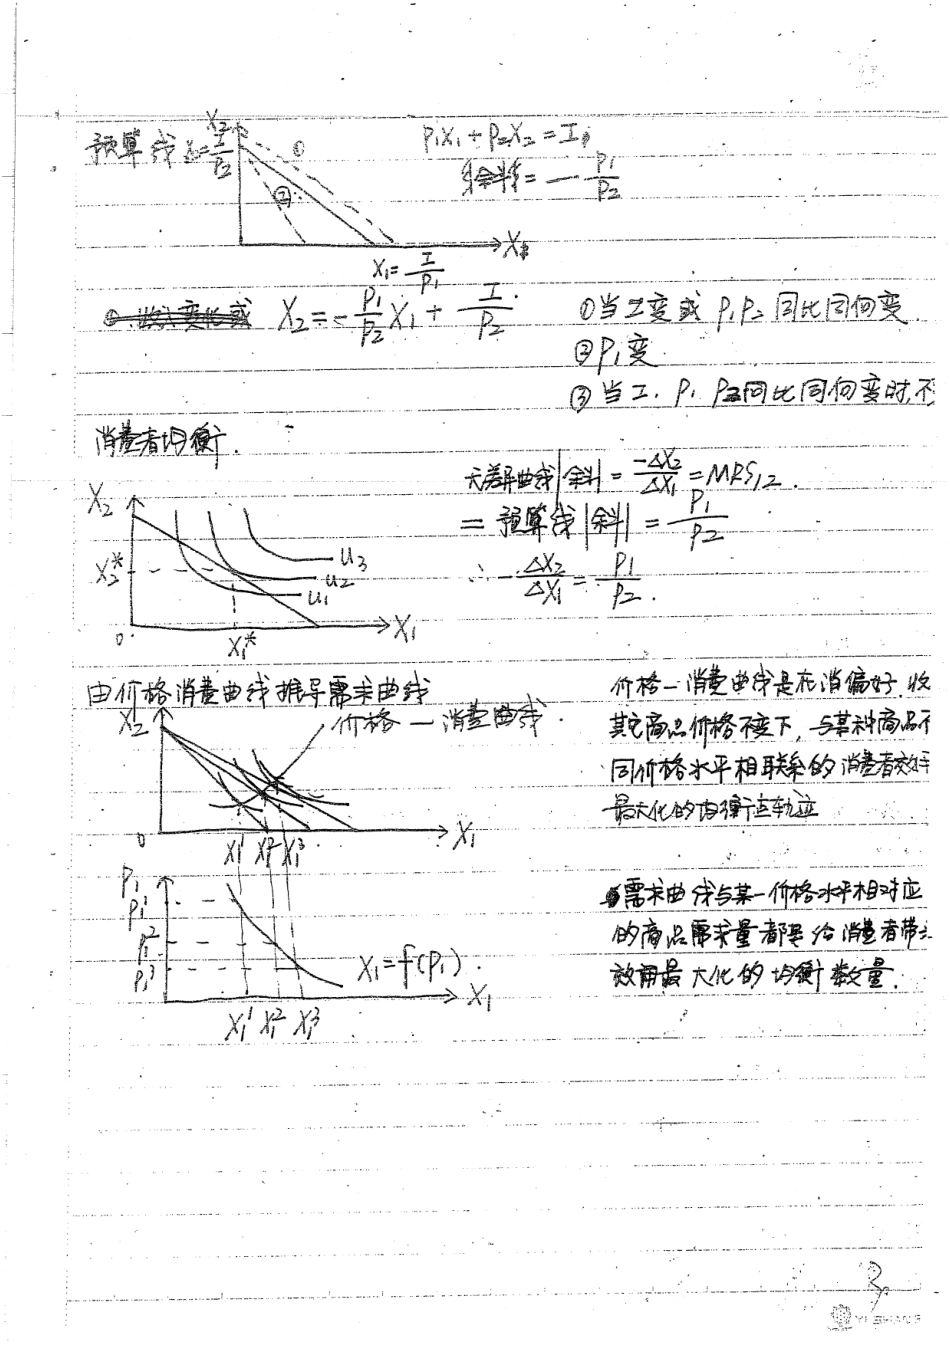 预算线 X₂=I/P₂ X₂ ① P₁X₁+P₂X₂=I
斜率=-P₁/P₂
②
X₁
X₁=I/P₁
X₂=-P₁/P₂ X₁+I/P₂ ①当I变或P₁P₂同比同向变
②P₁变
③当I.P₁P₂同比同向变时,不
消费者均衡.
无差异曲线|斜|=-ΔX₂/ΔX₁=MRS₁₂.
=预算线|斜|=P₁/P₂
∴-ΔX₂/ΔX₁=P₁/P₂.
X₂
X₂* U₃
U₂
U₁
0 X₁* X₁
由价格消费曲线推导需求曲线
X₂ 价格—消费曲线.
0 X₁¹ X₁² X₁³ X₁
价格—消费曲线是在消偏好.收
其它商品价格不变下,与某种商品不
同价格水平相联系的消费者效用
最大化的均衡点轨迹
P₁
P₁¹
P₁²
P₁³ X₁=f(P₁).
X₁
X₁¹ X₁² X₁³
需求曲线与某一价格水平相对应
的商品需求量都是给消费者带来
效用最大化的均衡数量.
YI SHANG